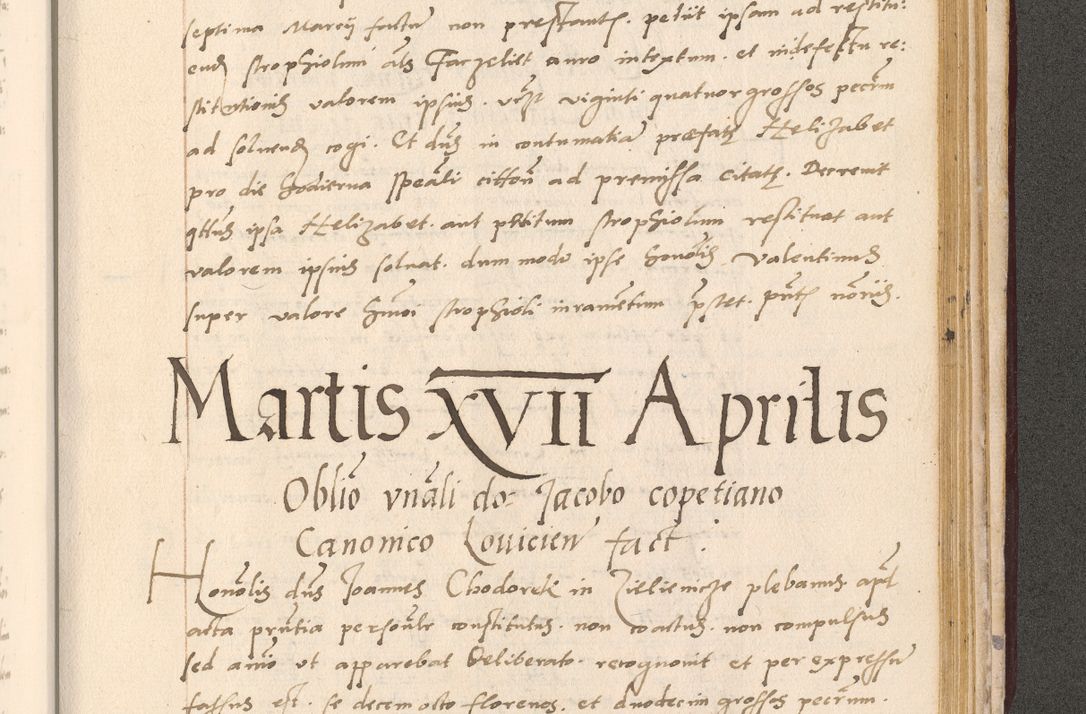 septima Marcii factũ non prestantẽ. petiit ipsam ad restitu:
end strophiolum als Farzelist auro intextum. et in defectu re:
stitutionis valorem ipsius. vzt viginti quatuor grossos pecũm
ad soluend cogi. Et dns in contumatia prefatę Helizabet
pro die hodierna speãli cittõn ad premissa citatę. Decrevit
qtus ipsa Helizabet. aut ptitum strophiolum restituat aut
valorem ipsius soluat. dummodo ipse honõlis Valentinus
super valore hmõi strophioli iuramẽtum pstet. pñt nõriis.
Martis XVII Aprilis
Obliõ vnãli do: Jacobo copetiano
Canonico Louicien fact:
Honõlis dñs Joannes Chodorek in Zielienicze plebanus apd
acta pñtia persoñlr constitutus. non coactus. non compulsus
sed animõ vt apparebat deliberato. recognouit et per expressũ
fassus est. se decem octo florenos. et duodecim grossos pecũm.